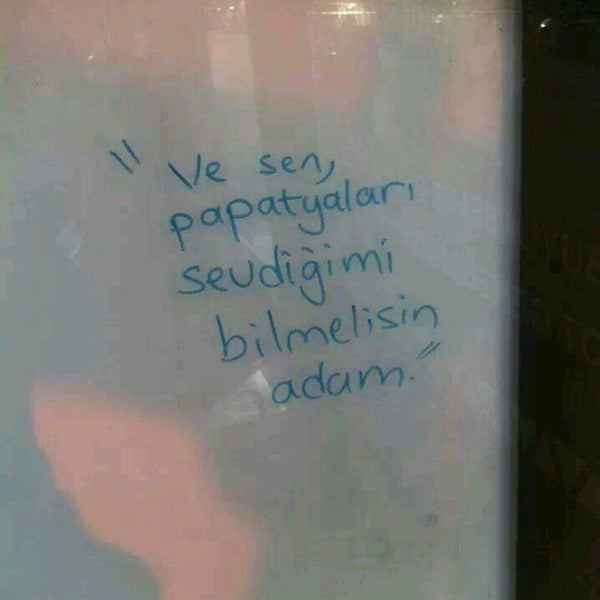 " Ve sen,
papatyaları
sevdiğimi
bilmelisin
adam."